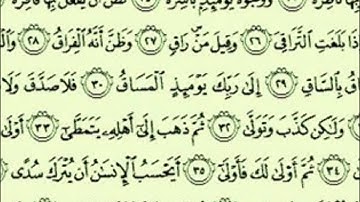 بِهَا فَاقِرَةٌ
ذَا بَلَغَتِ التَّرَاقِيَ ٢٦ وَقِيلَ مَنْ رَاقٍ ٢٧ وَظَنَّ أَنَّهُ الْفِرَاقُ ٢٨ وَالْ
اقُ بِالسَّاقِ ٢٩ إِلَىٰ رَبِّكَ يَوْمَئِذٍ الْمَسَاقُ ٣٠ فَلَا صَدَّقَ وَلَا
وَلَٰكِن كَذَّبَ وَتَوَلَّىٰ ٣٢ ثُمَّ ذَهَبَ إِلَىٰ أَهْلِهِ يَتَمَطَّىٰ ٣٣ أَوْلَىٰ
٣٤ ثُمَّ أَوْلَىٰ لَكَ فَأَوْلَىٰ ٣٥ أَيَحْسَبُ الْإِنسَانُ أَن يُتْرَكَ سُدًى